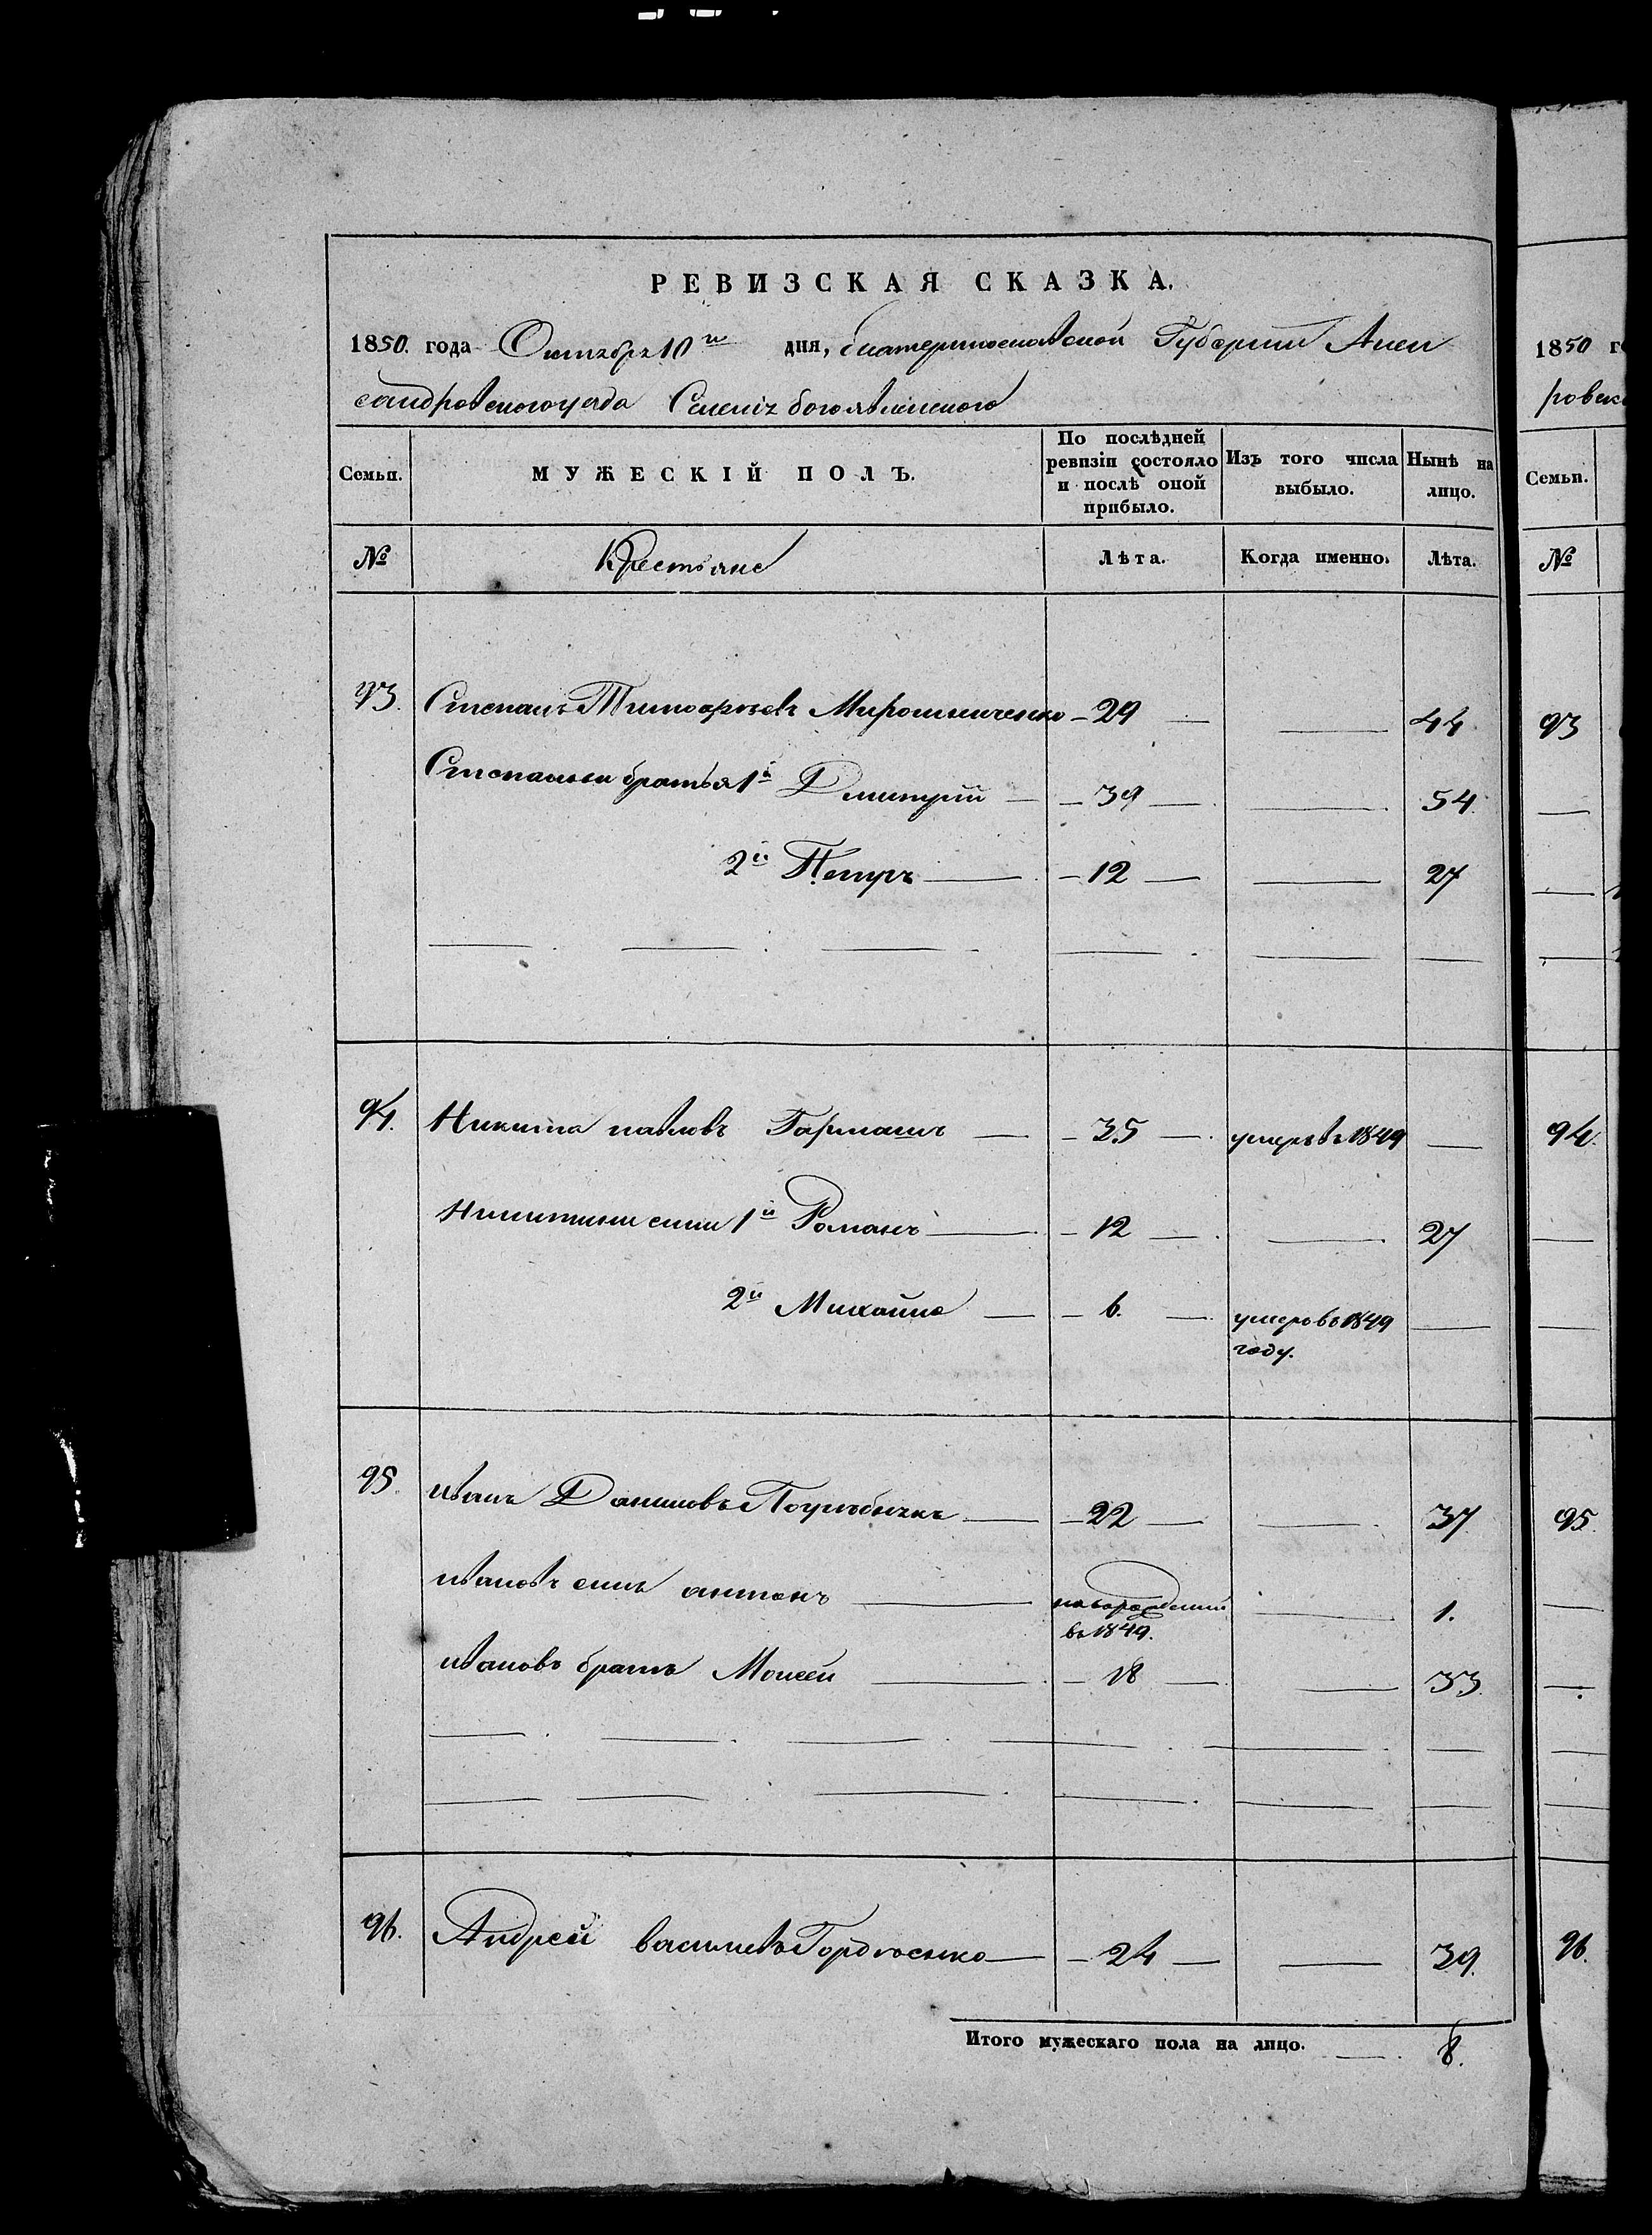 РЕВИЗСКАЯ СКАЗКА.
1850. года Октября 10го дня, Екатеринославской Губернии Алек
сандровского уезда Селенія богоявленского
Семьи. МУЖЕСКІЙ ПОЛЪ. По послѣдней ревизіи состояло и послѣ оной прибыло. Изъ того числа выбыло. Нынѣ на лицо.
№ Крестьяне Лѣта. Когда именно. Лѣта.
93. Степанъ Тимофѣевъ Мирошниченко 29 44
Степановы братья 1й Дмитрий 39 54
2й Петръ 12 27
94. Никита павловъ Гармашъ 35 умеръ въ 1849
Никитины сыны 1й Романъ 12 27
2й Михайло 6. умеръ въ 1849
году.
95. иванъ Даниловъ 22 37
ивановъ сынъ антонъ новорожденный
въ 1849. 1.
ивановъ братъ Моисей 18 33
96. Андрей васильевъ Гордіенко 24 39.
Итого мужескаго пола на лицо. 8.
1850 го
ровско
Семьи.
№
93
94.
95.
96.